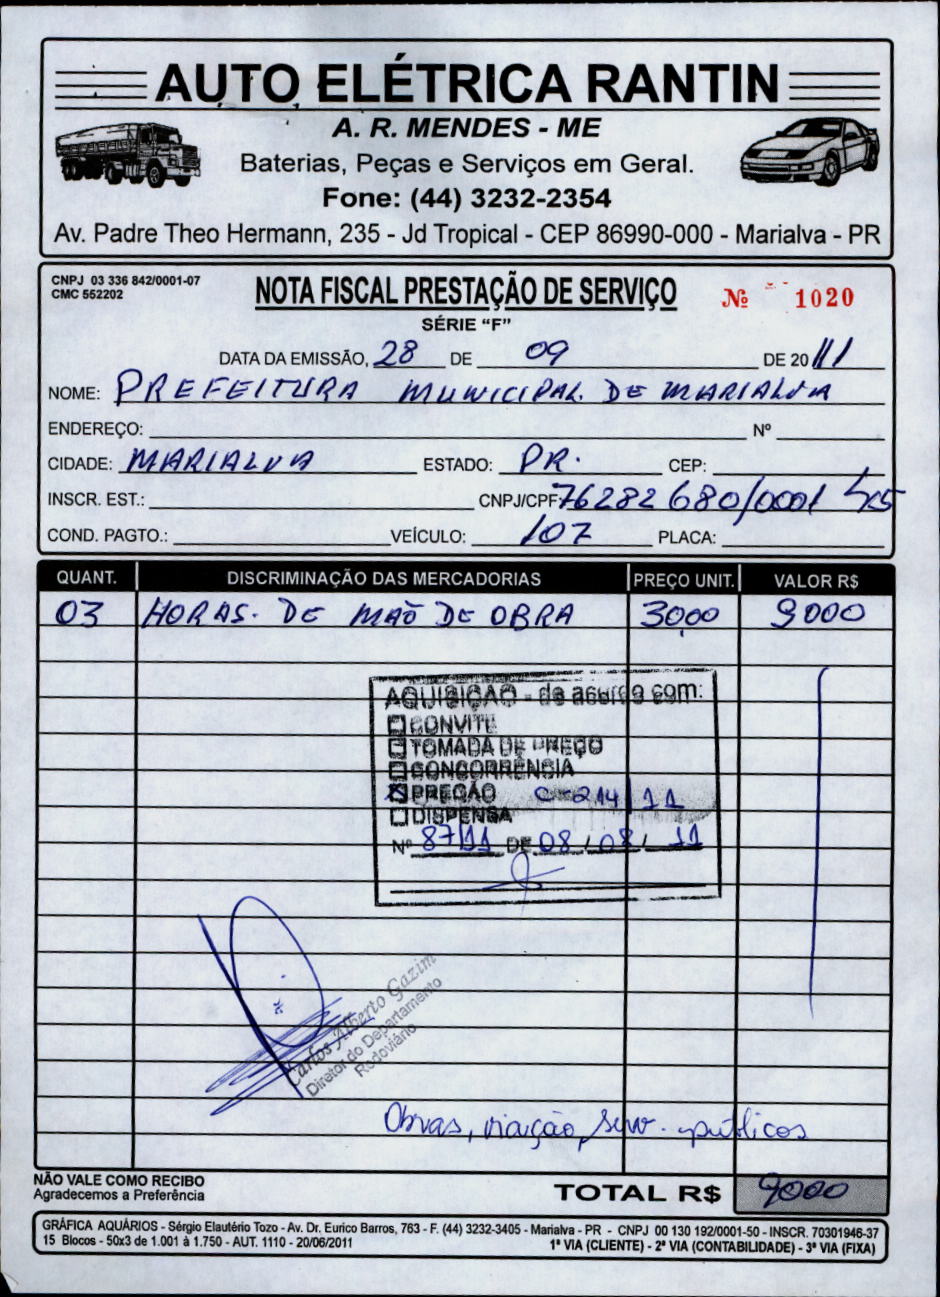 AUTO ELÉTRICA RANTIN
A. R. MENDES - ME
Baterias, Peças e Serviços em Geral.
Fone: (44) 3232-2354
Av. Padre Theo Hermann, 235 - Jd Tropical - CEP 86990-000 - Marialva - PR
CNPJ 03 336 842/0001-07
CMC 552202
NOTA FISCAL PRESTAÇÃO DE SERVIÇO
Nº 1020
SÉRIE "F"
DATA DA EMISSÃO, 28 DE 09 DE 20 11
NOME: PREFEITURA MUNICIPAL DE MARIALVA
ENDEREÇO: Nº
CIDADE: MARIALVA ESTADO: PR. CEP:
INSCR. EST.: CNPJ/CPF 76282680/0001 45
COND. PAGTO.: VEÍCULO: 107 PLACA:
QUANT. DISCRIMINAÇÃO DAS MERCADORIAS PREÇO UNIT. VALOR R$
03 HORAS. DE MÃO DE OBRA 3000 9000
AQUISIÇÃO - de acordo com:
CONVITE
TOMADA DE PREÇO
CONCORRÊNCIA
PREGÃO C-214/11
DISPENSA
Nº 87/11 DE 08/08/11
Carlos Alberto Gazim
Diretor do Departamento
Rodoviário
Obras, viação, serv. públicos
NÃO VALE COMO RECIBO
Agradecemos a Preferência
TOTAL R$ 9000
GRÁFICA AQUÁRIOS - Sérgio Elautério Tozo - Av. Dr. Eurico Barros, 763 - F. (44) 3232-3405 - Marialva - PR - CNPJ 00 130 192/0001-50 - INSCR. 70301946-37
15 Blocos - 50x3 de 1.001 à 1.750 - AUT. 1110 - 20/06/2011 1ª VIA (CLIENTE) - 2ª VIA (CONTABILIDADE) - 3ª VIA (FIXA)